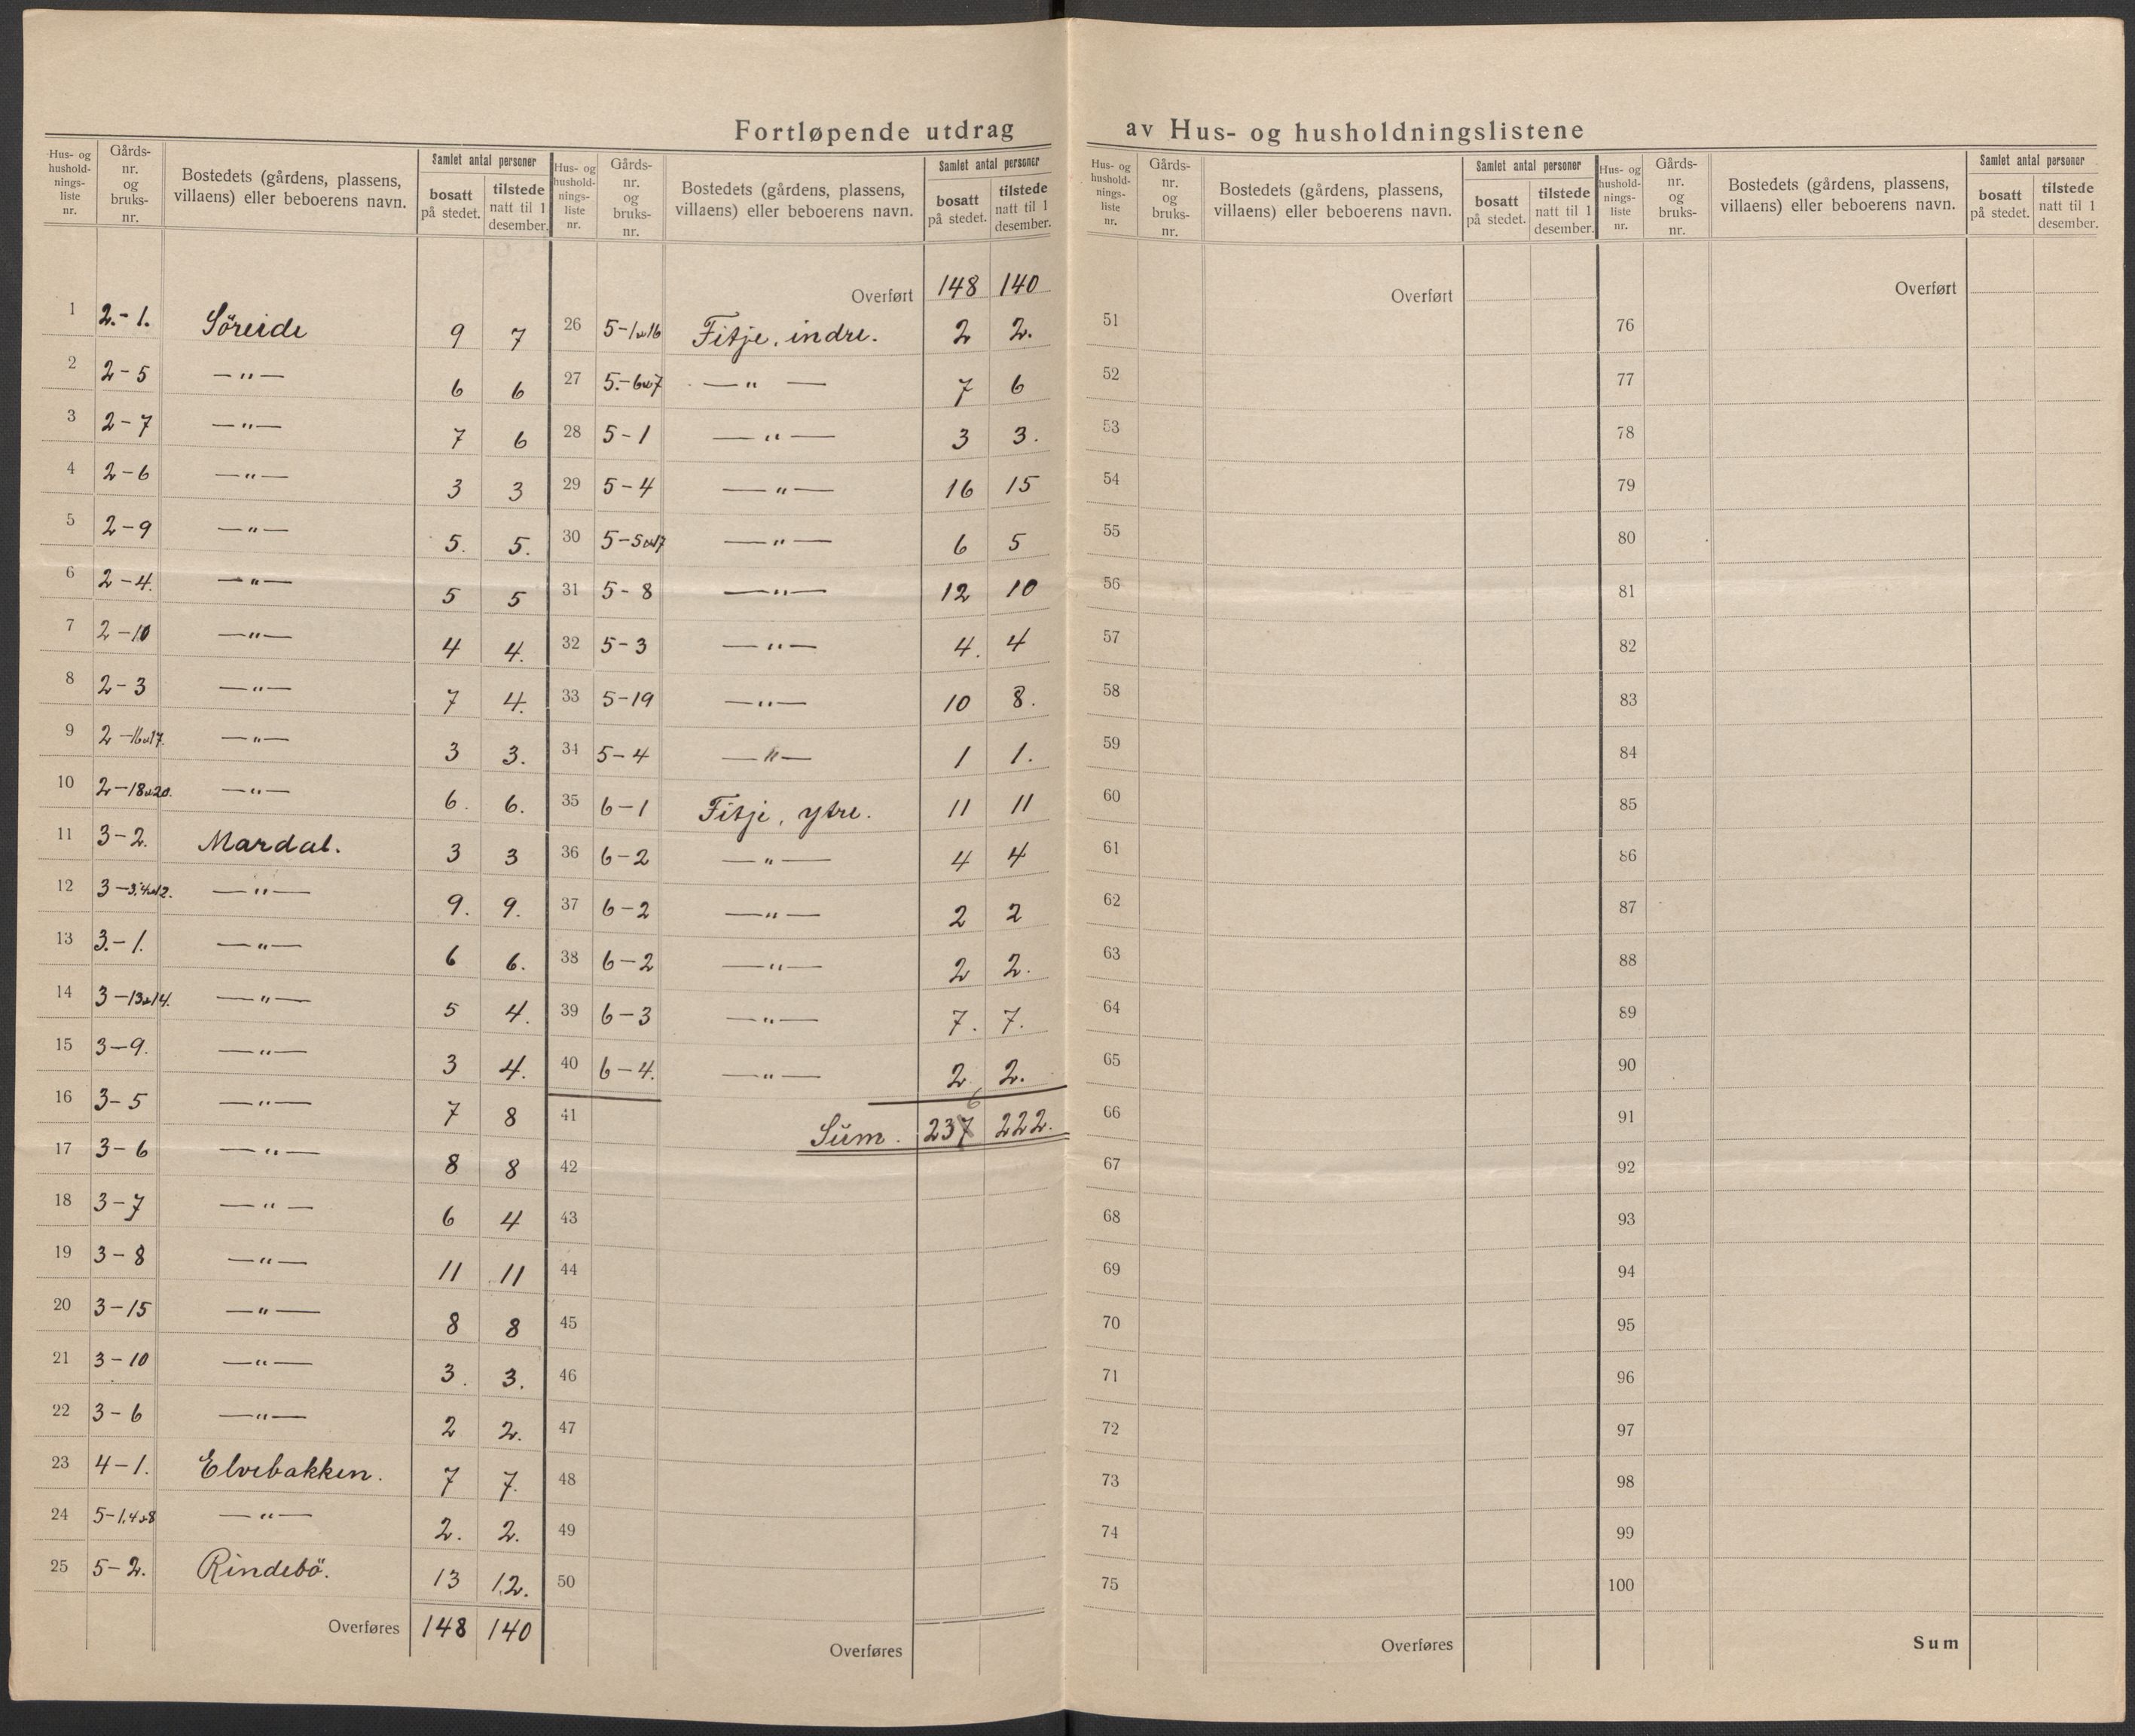 Fortløpende utdrag av Hus- og husholdningslistene
Hus- og hushold- nings- liste nr. | Gårds- nr. og bruks- nr. | Bostedets (gårdens, plassens, villaens) eller beboerens navn. | Samlet antal personer | bosatt på stedet. | tilstede natt til 1 desember.
1 2.-1. Söreide 9 7
2 2-5 —"— 6 6
3 2-7 —"— 7 6
4 2-6 —"— 3 3
5 2-9 —"— 5. 5.
6 2-4. —"— 5 5
7 2-10 —"— 4 4.
8 2-3 —"— 7 4.
9 2-16 17. —"— 3 3.
10 2-18 20. —"— 6. 6.
11 3-2. Mardal. 3 3
12 3-3,4 12. —"— 9. 9.
13 3.-1. —"— 6 6.
14 3-13 14. —"— 5 4.
15 3-9. —"— 3 4.
16 3-5 —"— 7 8
17 3-6 —"— 8 8
18 3-7 —"— 6 4
19 3-8 —"— 11 11
20 3-15 —"— 8 8
21 3-10 —"— 3. 3.
22 3-6 —"— 2 2.
23 4-1. Elvebakken. 7 7.
24 5-1,4 8 —"— 2. 2.
25 5-2. Rindebö. 13 12.
Overføres 148 140
Hus- og hushold- nings- liste nr. | Gårds- nr. og bruks- nr. | Bostedets (gårdens, plassens, villaens) eller beboerens navn. | Samlet antal personer | bosatt på stedet. | tilstede natt til 1 desember.
Overført 148 140
26 5-1 16 Fitje, indre. 2 2.
27 5.-6 7 —"— 7 6
28 5-1 —"— 3 3.
29 5-4 —"— 16 15
30 5-5 17 —"— 6 5
31 5-8 —"— 12 10
32 5-3 —"— 4. 4
33 5-19 —"— 10 8.
34 5-4 —"— 1 1.
35 6-1 Fitje, ytre. 11 11
36 6-2 —"— 4 4
37 6-2 —"— 2 2
38 6-2 —"— 2 2.
39 6-3 —"— 7. 7.
40 6-4. —"— 2 2.
6
41 Sum. 237 222.
42
43
44
45
46
47
48
49
50
Overføres
Hus- og hushold- nings- liste nr. | Gårds- nr. og bruks- nr. | Bostedets (gårdens, plassens, villaens) eller beboerens navn. | Samlet antal personer | bosatt på stedet. | tilstede natt til 1 desember.
Overført
51
52
53
54
55
56
57
58
59
60
61
62
63
64
65
66
67
68
69
70
71
72
73
74
75
Overføres
Hus- og hushold- nings- liste nr. | Gårds- nr. og bruks- nr. | Bostedets (gårdens, plassens, villaens) eller beboerens navn. | Samlet antal personer | bosatt på stedet. | tilstede natt til 1 desember.
Overført
76
77
78
79
80
81
82
83
84
85
86
87
88
89
90
91
92
93
94
95
96
97
98
99
100
Sum